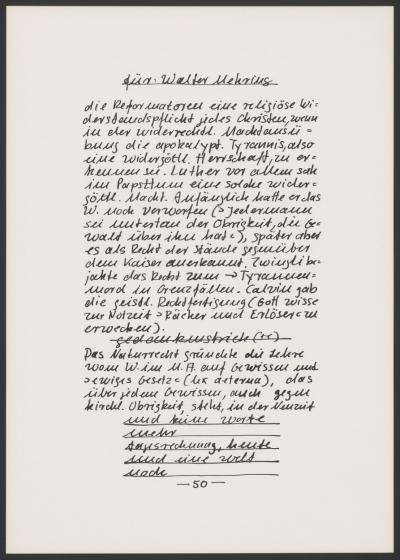 für: Walter Mehring
die Reformatoren eine religiöse Wi=
derstandspflicht jedes Christen, wenn
in der widerrechtl. Machtausü=
bung die apokalypt. Tyrannis, also
eine widergöttl. Herrschaft, zu er=
kennen sei. Luther vor allem sah
im Papsttum eine solche wider=
göttl. Macht. Anfänglich hatte er das
W. noch verworfen (>Jedermann
sei untertan der Obrigkeit, die Ge=
walt über ihn hat<), später aber
es als Recht der Stände gegenüber
dem Kaiser anerkannt. Zwingli be=
jahte das Recht zum → Tyrannen=
mord in Grenzfällen. Calvin gab
die geistl. Rechtfertigung (Gott wisse
zur Notzeit >Rächer und Erlöser< zu
erwecken).
gedankenstriche
Das Naturrecht gründete die Lehre
vom W. im M.A. auf Gewissen und
>ewiges Gesetz< (lex aeterna), das
über jedem Gewissen, auch gegen
kirchl. Obrigkeit, steht, in der Neuzeit
und keine worte
mehr
tagsrechnung, heute
und eine welt
noch
—50—